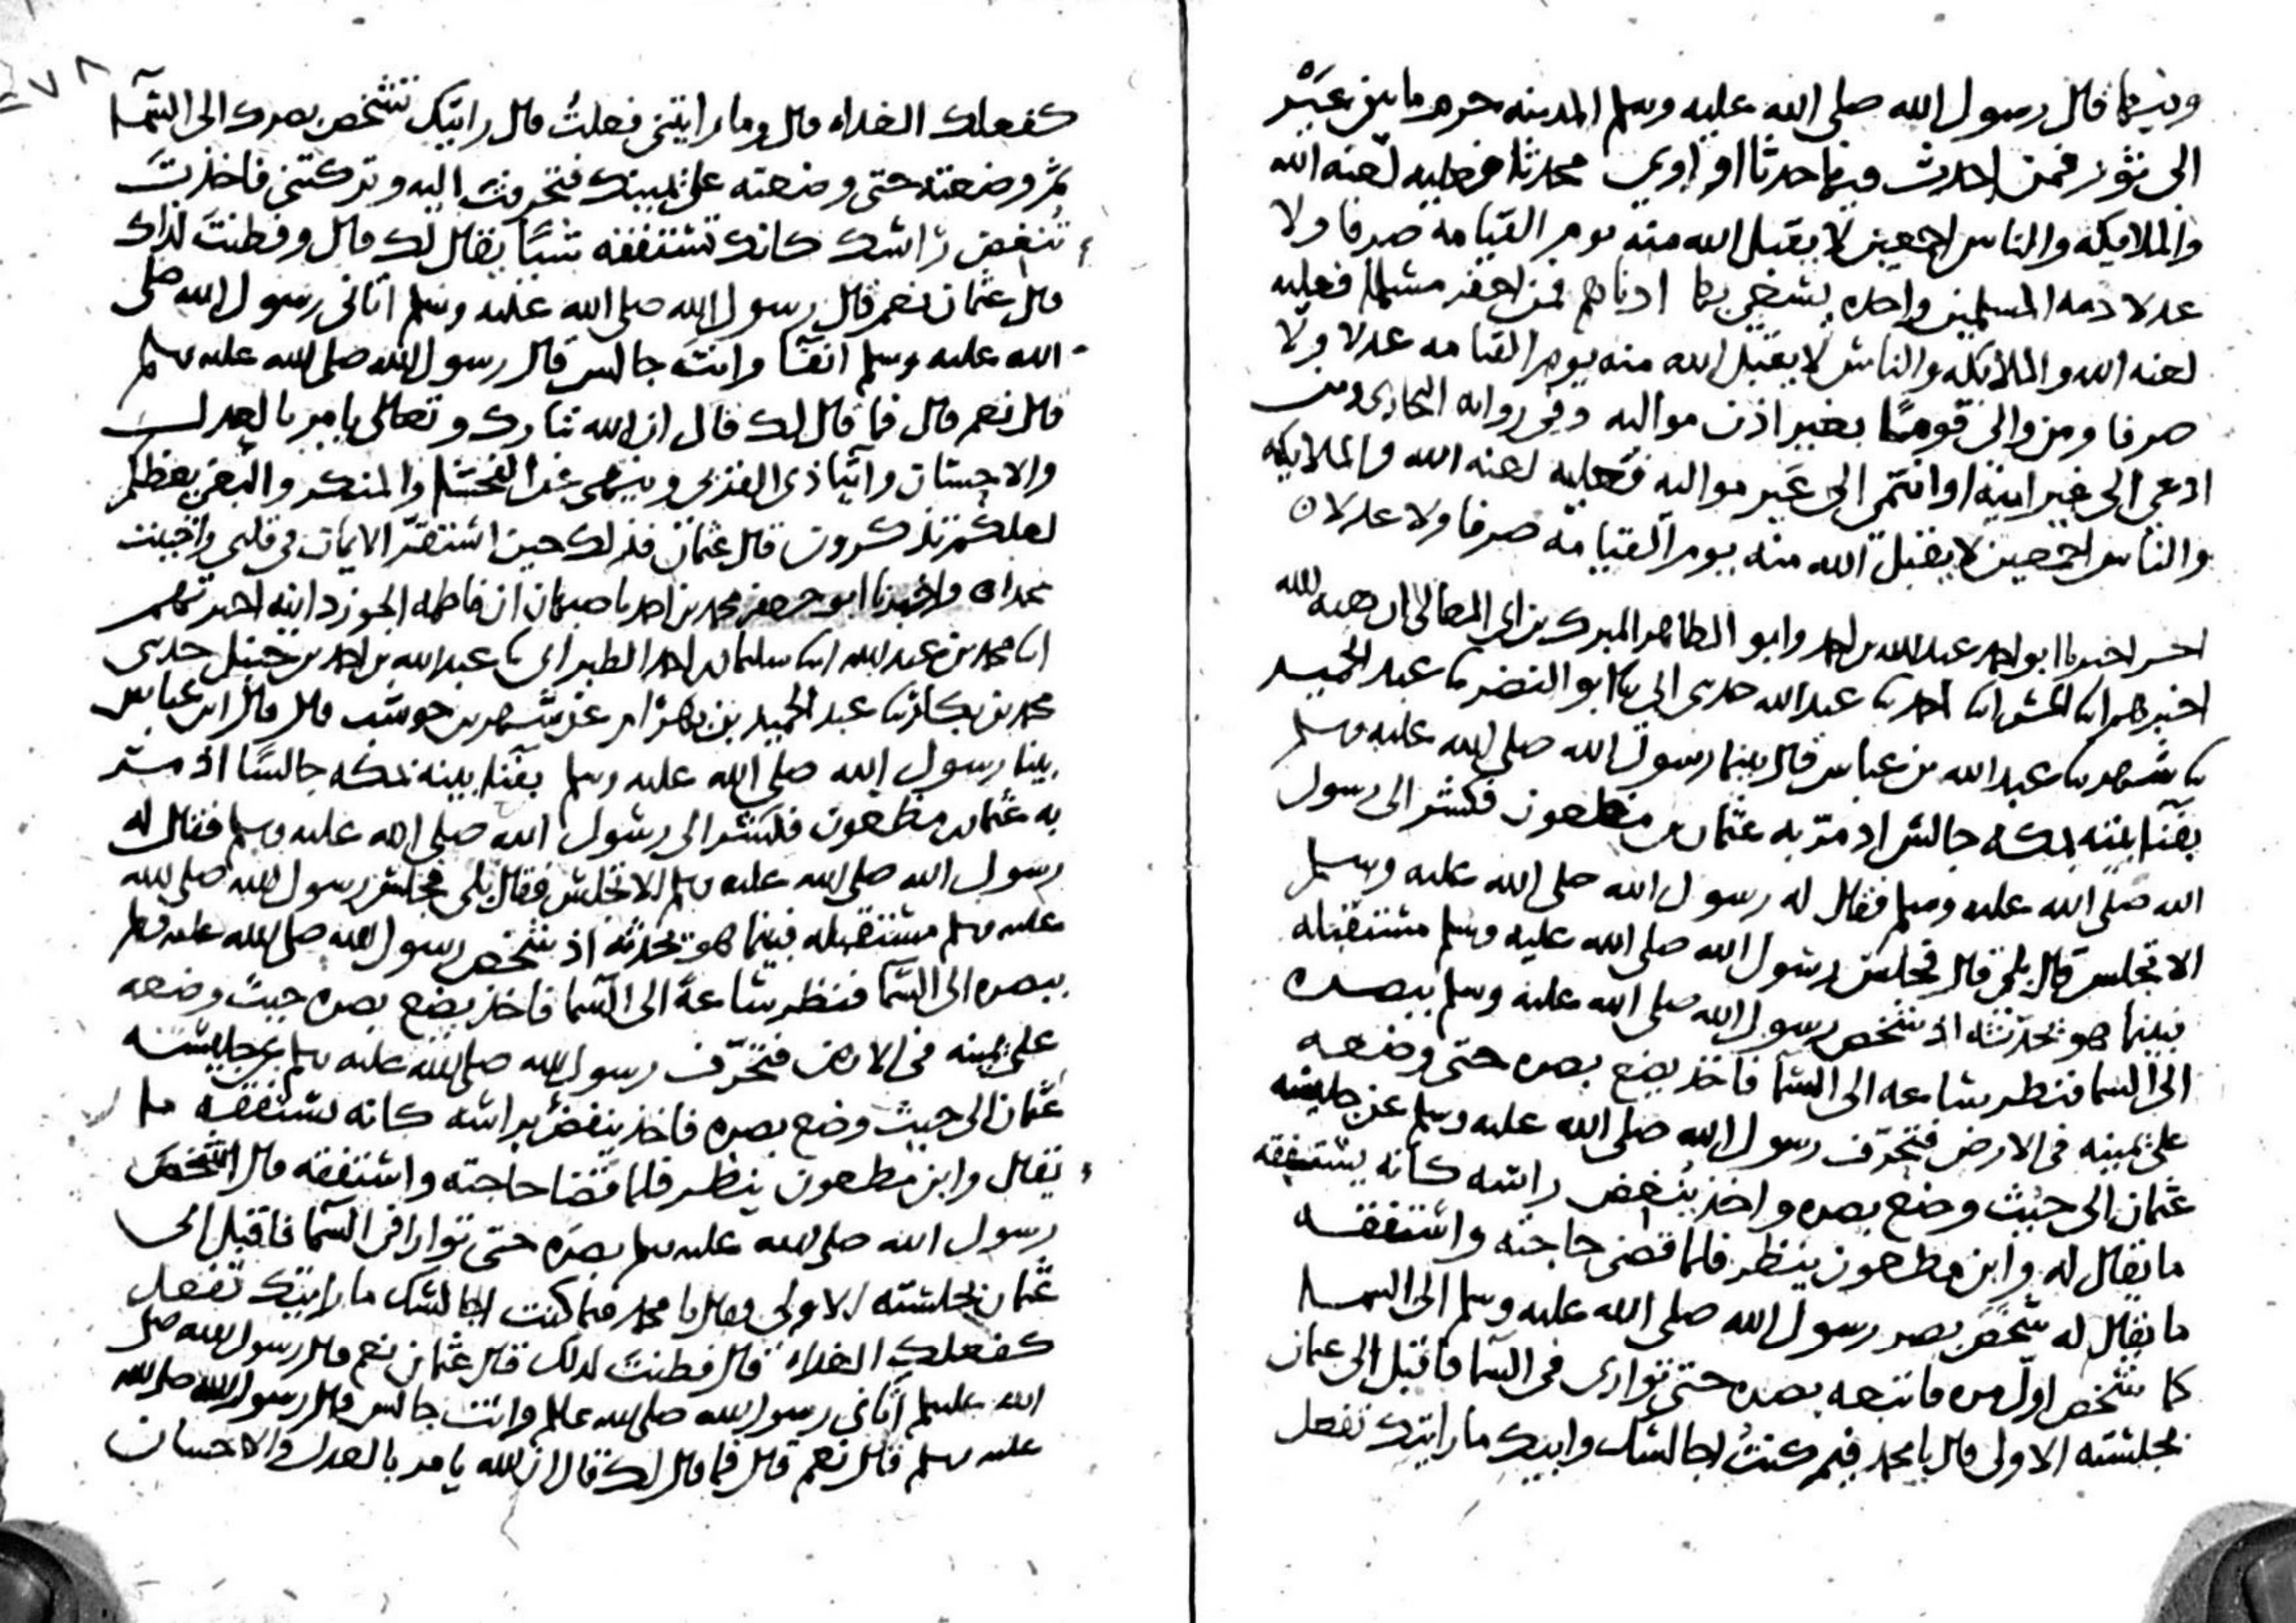 وفيها قال رسول الله صلى الله عليه وسلم المدينه حرم ما بين عَيْر
الى ثور فمن احدث فيها حدثا او اوى محدثا فعليه لعنه الله
والملايكه والناس اجمعين لا يقبل الله منه يوم القيامه صرفا ولا
عدلا ذمه المسلمين واحده يسعى بها ادناهم فمن اخفر مسلما فعليه
لعنه الله والملايكه والناس لا يقبل الله منه يوم القيامه عدلا ولا
صرفا ومن والى قومًا بغير اذن مواليه وفي روايه البخارى ومن
ادعى الى غير ابيه او انتمى الى غير مواليه فعليه لعنه الله والملايكه
والناس اجمعين لا يقبل الله منه يوم القيامه صرفا ولا عدلا ه
اخبرنا ابو احمد عبد الله بن احمد وابو الطاهر المبرك بن ابى المعالى ان هبه الله
اخبرهم ابنا الحسن ابنا احمد ثنا عبد الله حدثنى ابى ثنا ابو النضر ثنا عبد الحميد
ثنا شهر ثنا عبد الله بن عباس قال بينما رسول الله صلى الله عليه وسلم
بفنا بيته بمكه جالس اذ مرّ به عثمان بن مظعون فكشر الى رسول
الله صلى الله عليه وسلم فقال له رسول الله صلى الله عليه وسلم
الا تجلس قال بلى قال فجلس رسول الله صلى الله عليه وسلم مستقبله
فبينما هو يحدّثه اذ شخص رسول الله صلى الله عليه وسلم ببصره
الى السما فنظر ساعه الى السما فاخذ يضع بصره حتى وضعه
على يمينه فى الارض فتحرّف رسول الله صلى الله عليه وسلم عن جليسه
عثمان الى حيث وضع بصره واخذ يُنغض راسه كانه يستفقه
ما يقال له وابن مظعون ينظر فلما قضى حاجته واستفقه
ما يقال له شخص بصر رسول الله صلى الله عليه وسلم الى السما
كما شخص اوّل مره فاتبعه بصره حتى توارى فى السما فاقبل الى عثمان
بجلسته الاولى قال يا محمد فيم كنتُ اجالسك واتيك ما رايتك تفعل
كفعلك الغداه قال وما رايتنى فعلتُ قال رايتك تشخص بصرك الى السما
ثم وضعته حتى وضعته على يمينك فتحرفت اليه وتركتنى فاخذت
تُنغض راسك كانك تستفقه شيئا يقال لك قال وفطنت لذاك
قال عثمان نعم قال رسول الله صلى الله عليه وسلم اتانى رسول الله صلى
الله عليه وسلم انفا وانت جالس قال رسول الله صلى الله عليه وسلم
قال نعم قال فما قال لك قال ان الله تبارك وتعالى يامر بالعدل
والاحسان وايتا ذى القربى وينهى عن الفحشا والمنكر والبغى يعظكم
لعلكم تذكرون قال عثمان فذلك حين استقرّ الايمان فى قلبى واحببت
محمدا ه واخبرنا ابو جعفر محمد بن احمد باصبهان ان فاطمه الجوزدانيه اخبرتهم
ابنا محمد بن عبد الله ابنا سليمان بن احمد الطبرانى ثنا عبد الله بن احمد بن حنبل حدثنى
محمد بن بكار ثنا عبد الحميد بن بهرام عن شهر بن حوشب قال قال ابن عباس
بينا رسول الله صلى الله عليه وسلم بفنا بيته بمكه جالسًا اذ مر
به عثمان بن مظعون فكشر الى رسول الله صلى الله عليه وسلم فقال له
رسول الله صلى الله عليه وسلم الا تجلس فقال بلى فجلس رسول الله صلى الله
عليه وسلم مستقبله فبينما هو يحدثه اذ شخص رسول الله صلى الله عليه وسلم
ببصره الى السما فنظر ساعةً الى السما فاخذ يضع بصره حيث وضعه
على يمينه فى الارض فتحرّف رسول الله صلى الله عليه وسلم عن جليسه
عثمان الى حيث وضع بصره فاخذ ينغض براسه كانه يستفقه ما
يقال وابن مظعون ينظر فلما قضا حاجته واستفقه قال اشخص
رسول الله صلى الله عليه وسلم بصره حتى توارا فى السما فاقبل الى
عثمان بجلسته الاولى فقال يا محمد فيما كنت اجالسك ما رايتك تفعل
كفعلك الغداه قال فطنت لذلك قال عثمان نعم قال رسول الله صلى
الله عليه وسلم اتانى رسول الله صلى الله عليه وسلم وانت جالس قال رسول الله صلى الله
عليه وسلم قال نعم قال فما قال لك قال ان الله يامر بالعدل والاحسان